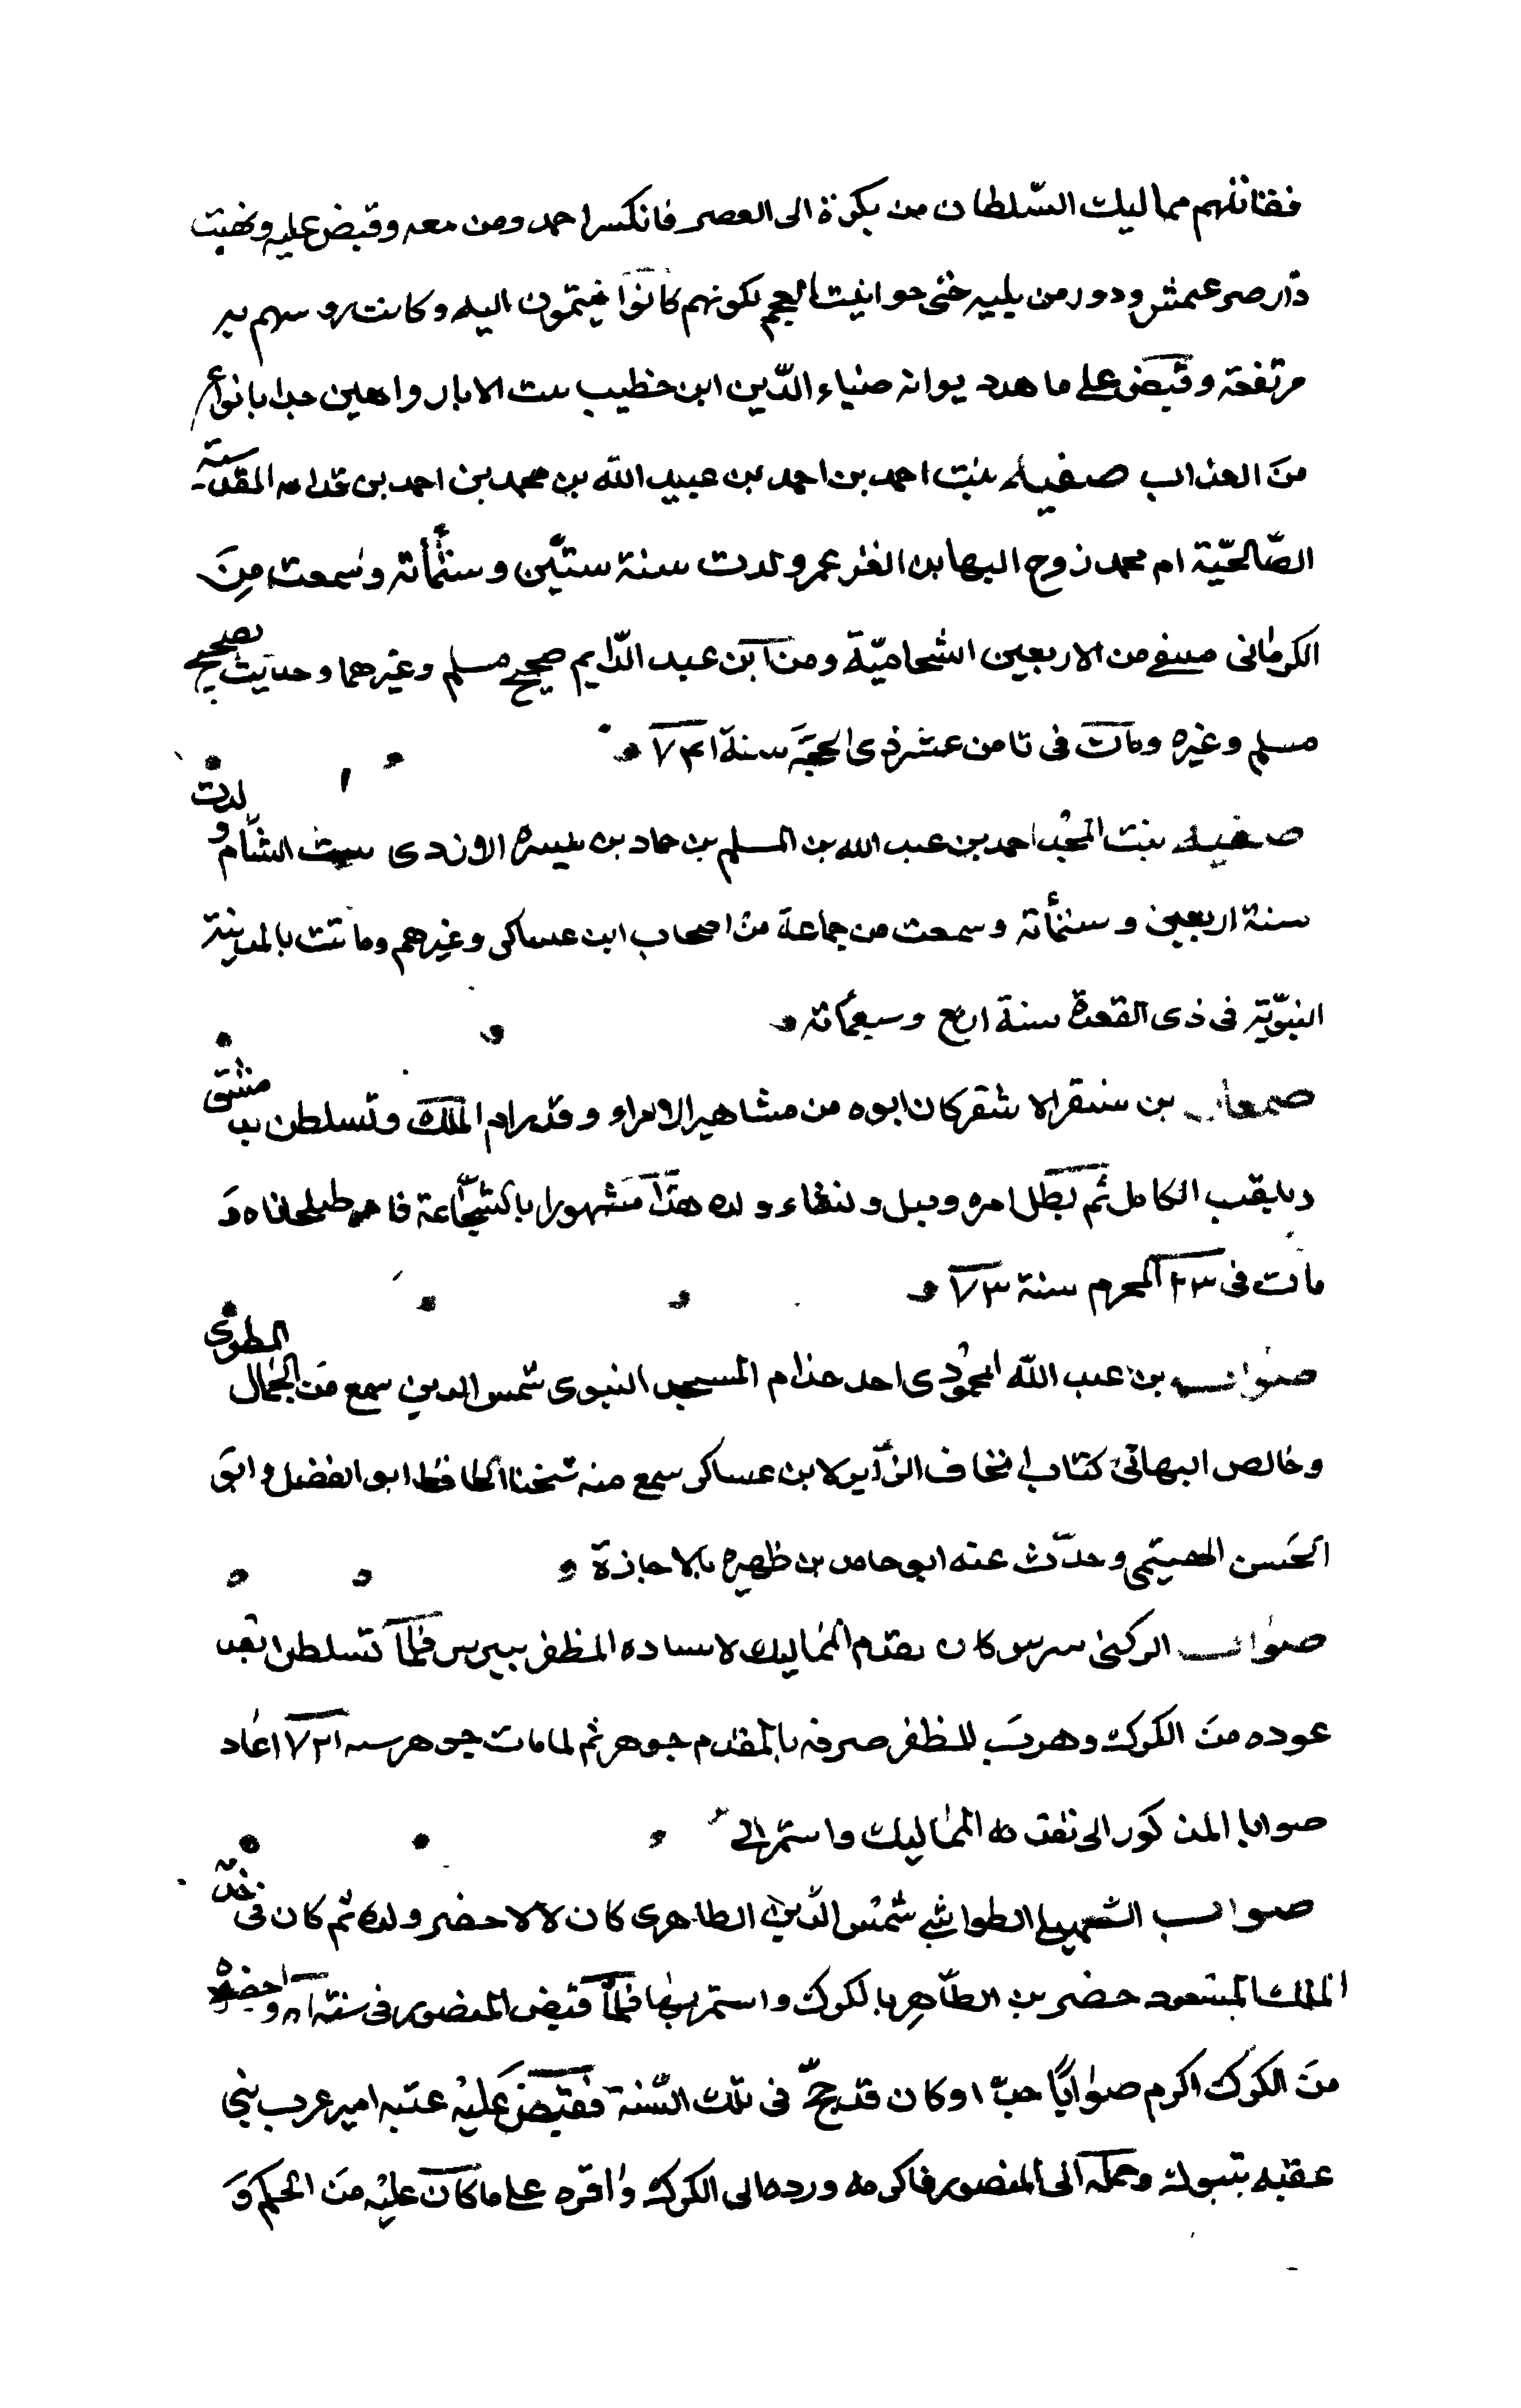 فقاتلهم مماليك السّلطان من بكرة الى العصر فانكسر احمد ومن معه وقبض عليه ونهبت
دار صرغمش ودور من يليه حتى حوانيت العجم لكونهم كانوا ينتمون اليه وكانت روسهم به
مرتفعة وقبض على ديوانه ضياء الدّين ابن خطيب بيت الابار واهين جدا بانواع
من العذاب صفيه بنت احمد بن احمد بن عبيد الله بن محمد بن احمد بن قدامه المقدسيّة
الصّالحيّة ام محمد زوج البها بن العز عمر ولدت سنة ستّين وستمأته وسمعت من
الكرمانى من الاربعين الشحاميّة ومن ابن عبد الدّايم صحيح مسلم وغيرهما وحدثت بصحيح
مسلم وغيره وماتت فى ثامن عشر ذى الحجّة سنة ٧٤١
صفيه بنت المجد احمد بن عبد الله بن المسلم بن حماد بن ميسره الازدى ست الشام ولدت
سنة اربعين وستمأته وسمعت من جماعة من اصحاب ابن عساكر وغيرهم وماتت بالمدينة
النبويّة فى ذى القعدة سنة اربع وسبعمأته
صمغار بن سنقر الاشقر كان ابوه من مشاهير الامراء وقد رام الملك وتسلطن بدمشق
ولقب الكامل ثم بطل امره ونشاء ولده هذا مشهورا بالشجاعة فامر طبلخاناه و
مات فى ٢٣ المحرم سنة ٧٣
صواب بن عبد الله المحمودى احد خدام المسجد النبوى شمس الدين سمع من الجمال المطرى
وخالص البهائى كتاب اتحاف الزاير لابن عساكر سمع منه شيخنا الحافظ ابو الفضل وابو
الحسن الهيتمى وحدّث عنه ابو حامد بن ظهيره بالاجازة
صواب الركنى بيبرس كان مقدم المماليك لاستاده المظفر بيبرس فلما تسلطن الناصر بعد
عوده من الكرك وهرب المظفر صرفه بالمقدم جوهر ثم لما مات جوهر سنه ٧٢١ اعاد
صوابا المذكور الى تقدمه المماليك واستمر الى
صواب السهيلى الطواشى شمس الدّين الظاهرى كان لالا خضر ولده ثم كان فى خدمة
الملك المسعود خضر بن الظاهر بالكرك واستمر بها فلما قبض المنصور فى سنة واحضره
من الكرك اكرم صوابًا جدّا وكان قد حجّ فى تلك السّنة فقبض عليه عتبه امير عرب بنى
عقبه بتبوك وحمله الى المنصور فاكرمه ورده الى الكرك واقره على ما كان عليه من الحكم و